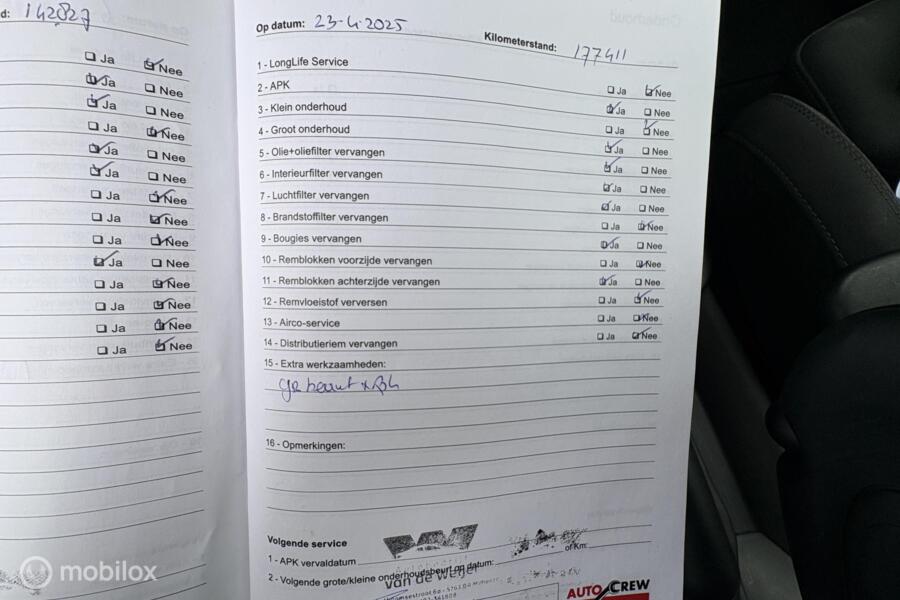 d: 142827
Ja Nee
Ja Nee
Ja Nee
Ja Nee
Ja Nee
Ja Nee
Ja Nee
Ja Nee
Ja Nee
Ja Nee
Ja Nee
Ja Nee
Ja Nee
Ja Nee
Op datum: 23-4-2025
Kilometerstand: 177411
1 - LongLife Service Ja Nee
2 - APK Ja Nee
3 - Klein onderhoud Ja Nee
4 - Groot onderhoud Ja Nee
5 - Olie+oliefilter vervangen Ja Nee
6 - Interieurfilter vervangen Ja Nee
7 - Luchtfilter vervangen Ja Nee
8 - Brandstoffilter vervangen Ja Nee
9 - Bougies vervangen Ja Nee
10 - Remblokken voorzijde vervangen Ja Nee
11 - Remblokken achterzijde vervangen Ja Nee
12 - Remvloeistof verversen Ja Nee
13 - Airco-service Ja Nee
14 - Distributieriem vervangen Ja Nee
15 - Extra werkzaamheden:
16 - Opmerkingen:
Volgende service
1 - APK vervaldatum of Km:
2 - Volgende grote/kleine onderhoudsbeurt op datum:
van de Weijer
AUTO CREW
mobilox